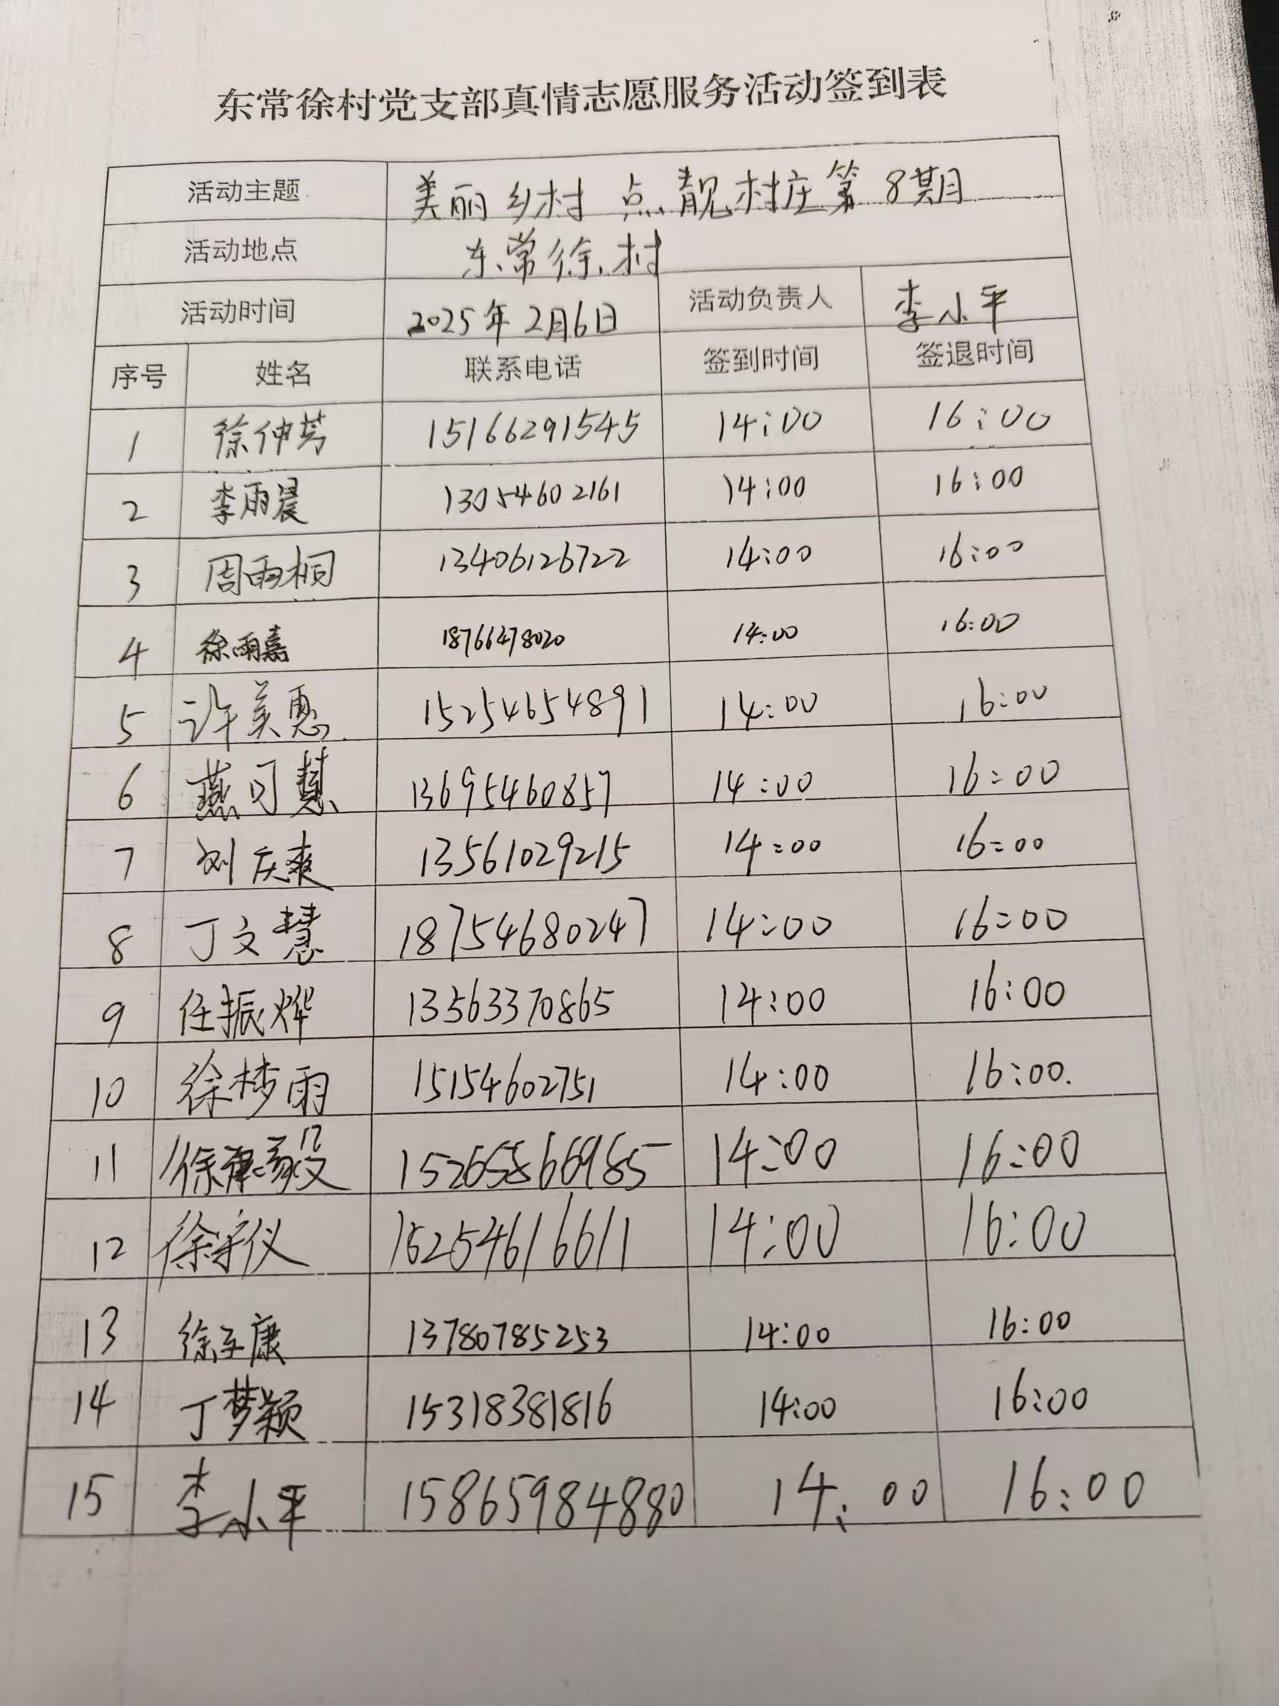 东常徐村党支部真情志愿服务活动签到表
活动主题 美丽乡村 点靓村庄第8期
活动地点 东常徐村
活动时间 2025年2月6日 活动负责人 李小平
序号 姓名 联系电话 签到时间 签退时间
1 徐仲芳 15166291545 14:00 16:00
2 李雨晨 13054602161 14:00 16:00
3 周雨桐 13406126722 14:00 16:00
4 徐雨嘉 18766478020 14:00 16:00
5 许美惠 15254654891 14:00 16:00
6 燕可慧 13695460857 14:00 16:00
7 刘庆爽 13561029215 14:00 16:00
8 丁文慧 18754680247 14:00 16:00
9 任振烨 13563370865 14:00 16:00
10 徐梦雨 15154602751 14:00 16:00.
11 徐 14:00 16:00
12 徐子仪 15254616611 14:00 16:00
13 徐玉康 13780785253 14:00 16:00
14 丁梦颖 15318381816 14:00 16:00
15 李小平 15865984880 14:00 16:00